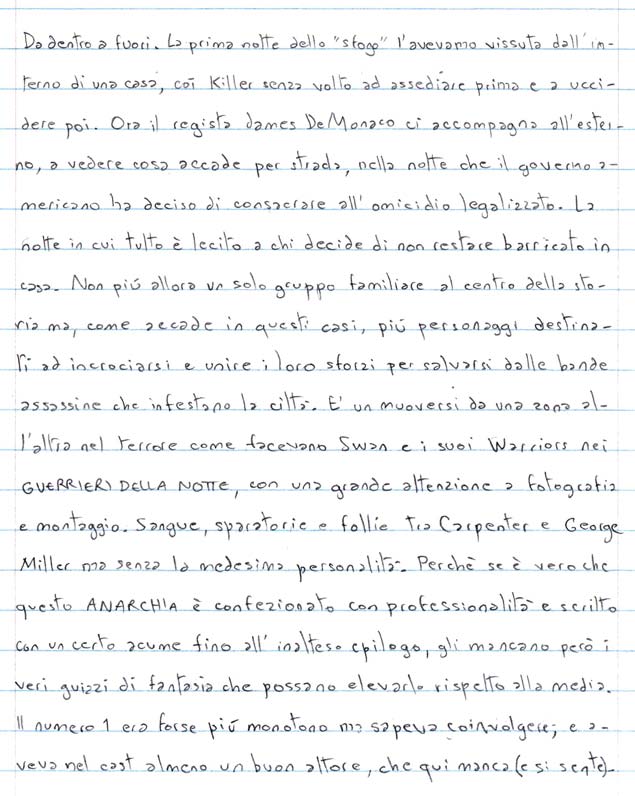 Da dentro a fuori. La prima notte dello "sfogo" l'avevamo vissuta dall'in-
terno di una casa, coi Killer senza volto ad assediare prima e a ucci-
dere poi. Ora il regista James DeMonaco ci accompagna all'ester-
no, a vedere cosa accade per strada, nella notte che il governo a-
mericano ha deciso di consacrare all'omicidio legalizzato. La
notte in cui tutto è lecito a chi decide di non restare barricato in
casa. Non più allora un solo gruppo familiare al centro della sto-
ria ma, come accade in questi casi, più personaggi destina-
ti ad incrociarsi e unire i loro sforzi per salvarsi dalle bande
assassine che infestano la città. E' un muoversi da una zona al-
l'altra nel terrore come facevano Swan e i suoi Warriors nei
GUERRIERI DELLA NOTTE, con una grande attenzione a fotografia
e montaggio. Sangue, sparatorie e follie tra Carpenter e George
Miller ma senza la medesima personalità. Perchè se è vero che
questo ANARCHIA è confezionato con professionalità e scritto
con un certo acume fino all'inatteso epilogo, gli mancano però i
veri guizzi di fantasia che possano elevarlo rispetto alla media.
Il numero 1 era forse più monotono ma sapeva coinvolgere; e a-
veva nel cast almeno un buon attore, che qui manca (e si sente).